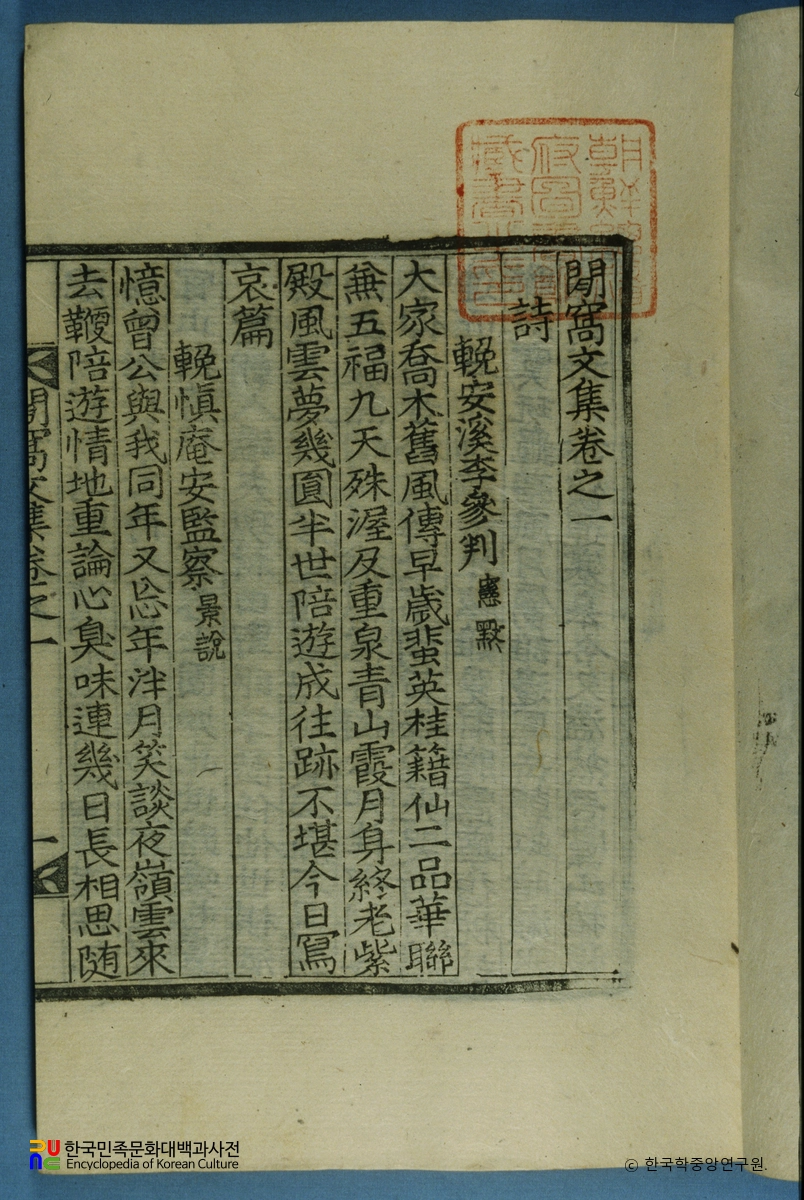 閒窩文集卷之一
詩
輓安溪李參判憲黙
大家喬木舊風傳早歲蜚英桂籍仙二品華聯
兼五福九天殊渥及重泉青山霞月身終老紫
殿風雲夢幾圓半世陪遊成往跡不堪今日寫
哀篇
輓愼庵安監察景說
憶曾公與我同年又忝年泮月笑談夜嶺雲來
去鞭陪遊情地重論心臭味連幾日長相思随
閒窩文集卷之一
一
한국민족문화대백과사전
Encyclopedia of Korean Culture
ⓒ 한국학중앙연구원